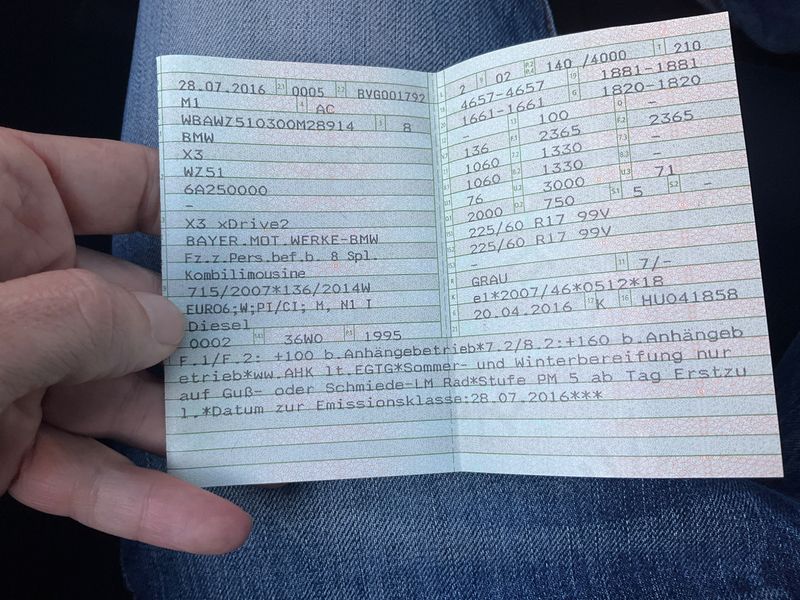 28.07.2016 0005 BVG001792
M1 AC
WBAWZ510300M28914 8
BMW
X3
WZ51
6A250000
-
X3 xDrive2
BAYER.MOT.WERKE-BMW
Fz.z.Pers.bef.b. 8 Spl.
Kombilimousine
715/2007*136/2014W
EURO6;W;PI/CI; M, N1 I
Diesel
0002 36W0 1995
2 02 140 /4000 210
4657-4657 1881-1881
1661-1661 1820-1820
- 100 -
136 2365 2365
1060 1330 -
1060 1330 -
76 3000 71
2000 750 5 -
225/60 R17 99V
225/60 R17 99V
-
- 7/-
GRAU
e1*2007/46*0512*18
20.04.2016 K HU041858
F.1/F.2: +100 b.Anhängebetrieb*7.2/8.2:+160 b.Anhängeb
etrieb*ww.AHK lt.EGTG*Sommer- und Winterbereifung nur
auf Guß- oder Schmiede-LM Rad*Stufe PM 5 ab Tag Erstzu
l.*Datum zur Emissionsklasse:28.07.2016***